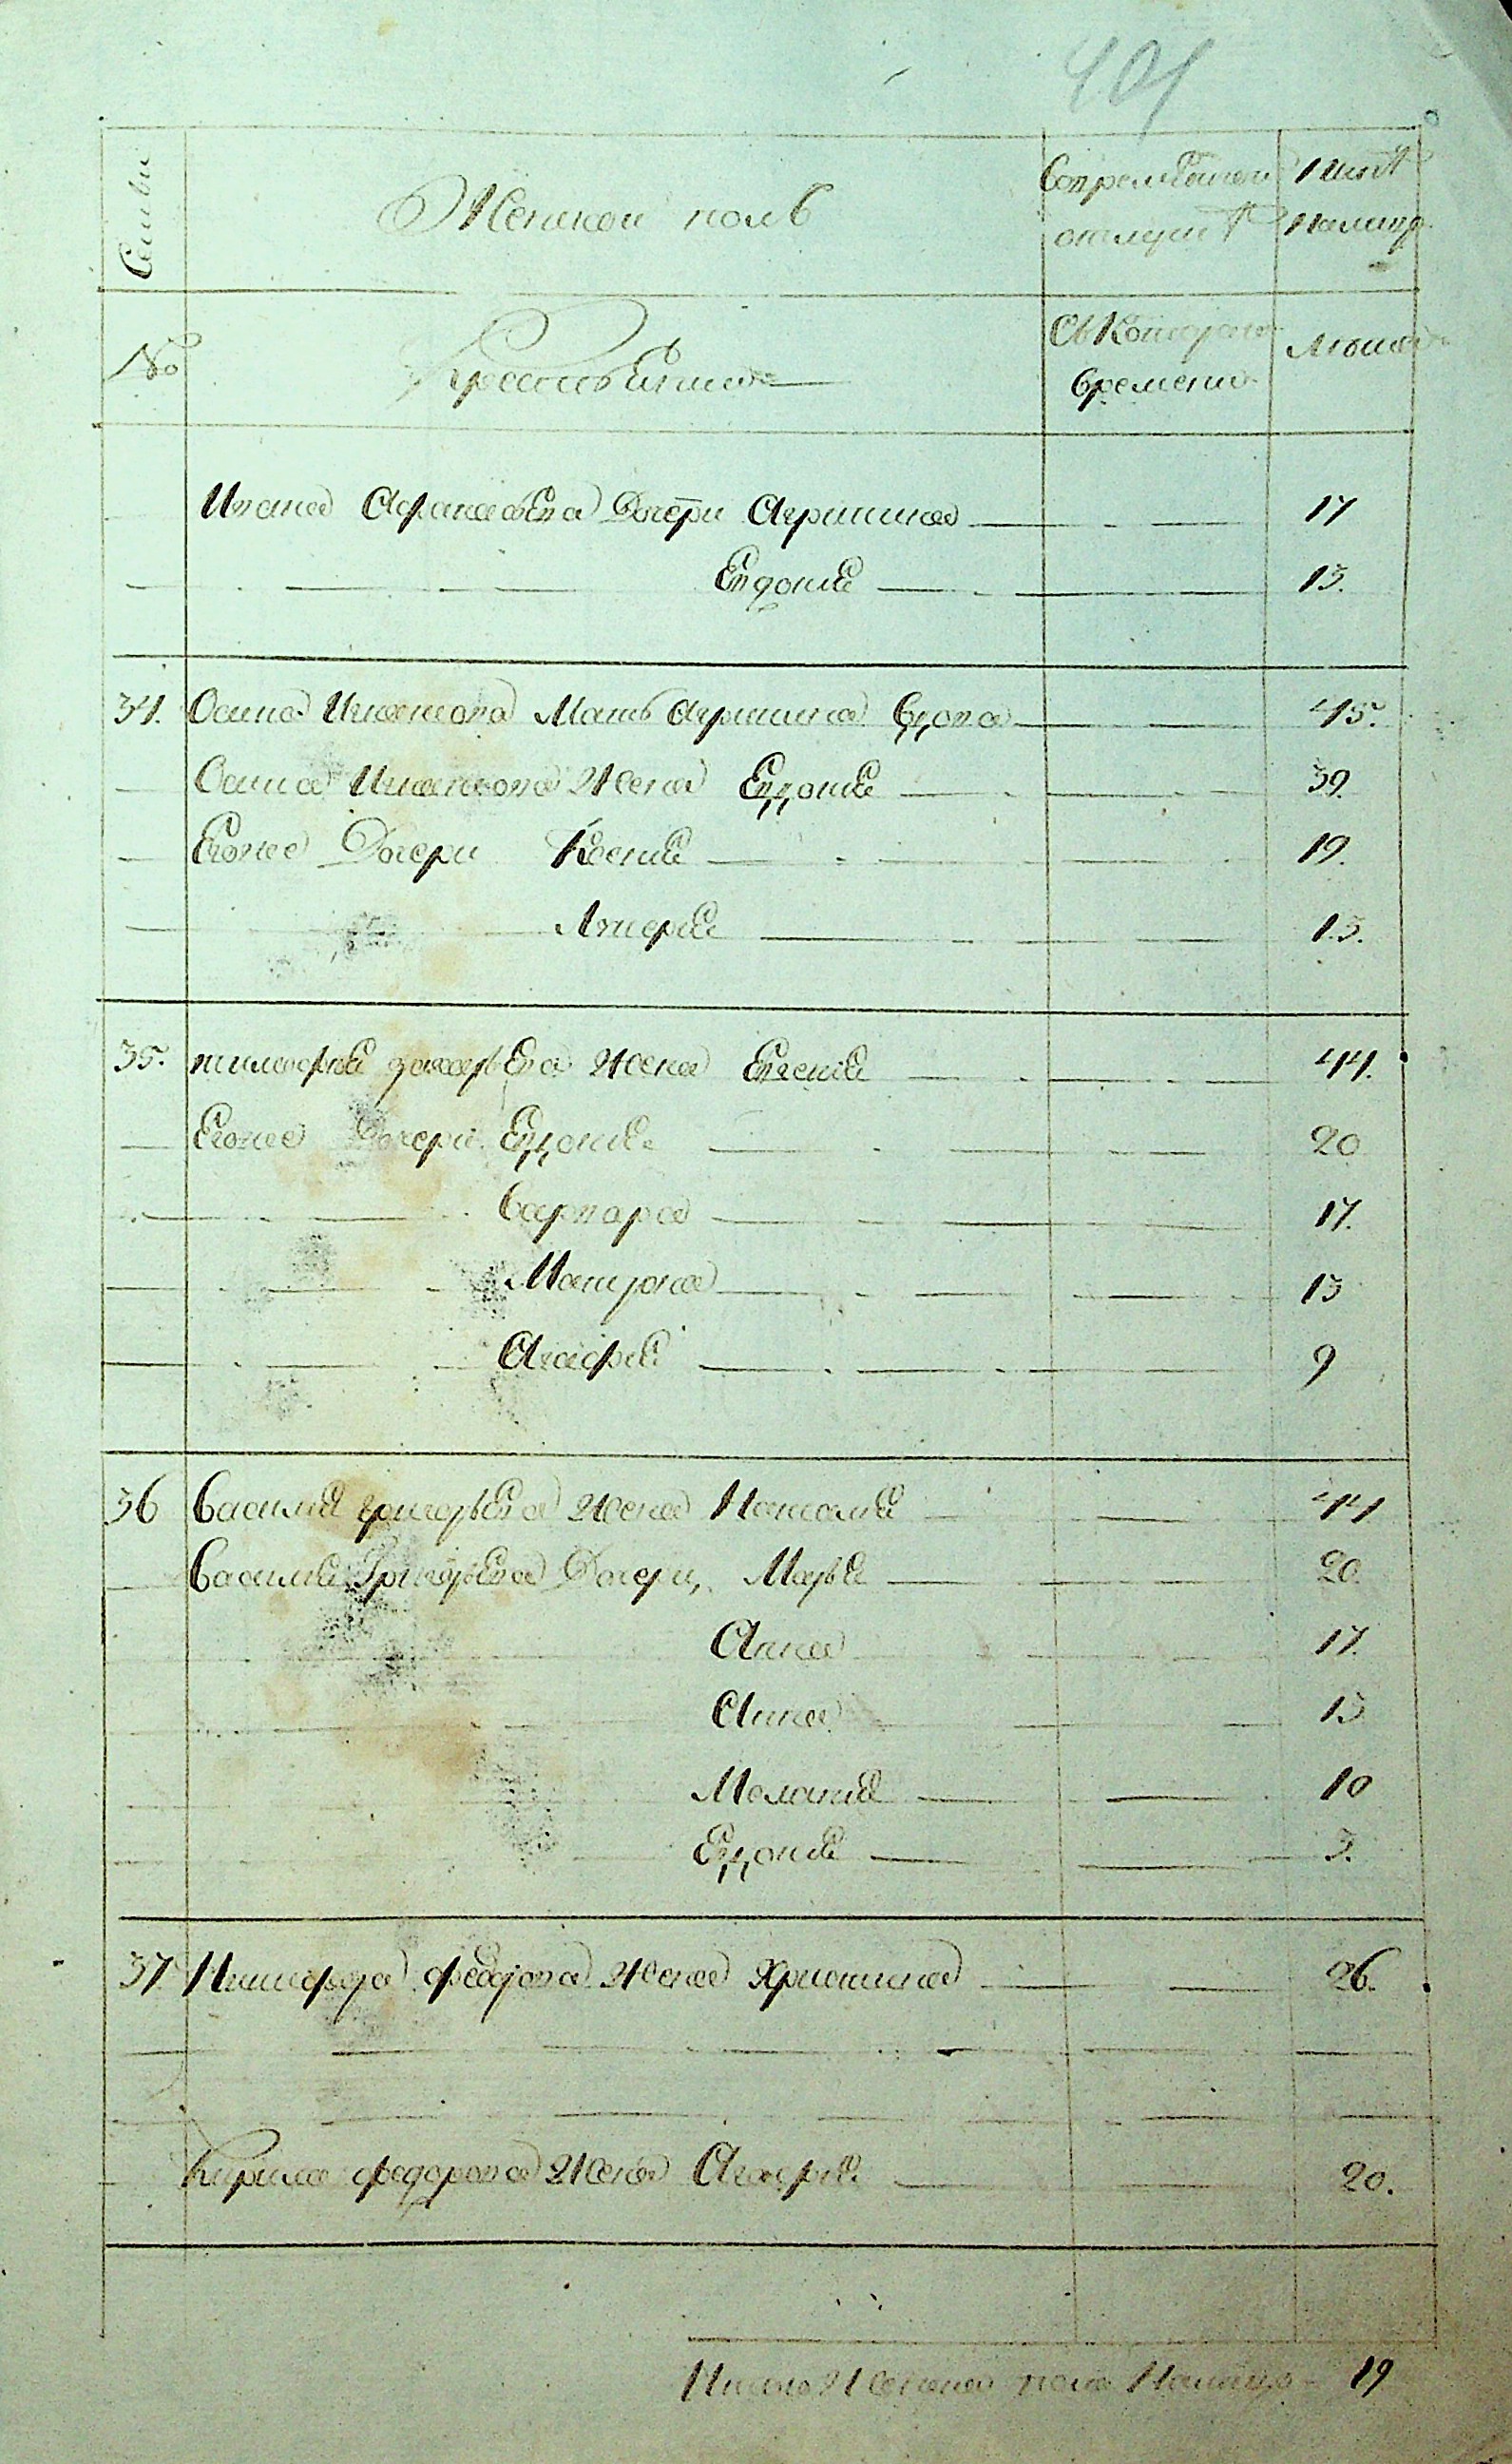 401
Семьи
Женской полъ
Вовременной отлучкѣ
Нынѣ Налицо
№
Крестьянина
Съ Котораго времени
Лѣта
Ивана Афанасьева Дочери Агрипина 17
Евдокия 13.
34. Осипа Игнатова Мать Агрипина Вдова 45.
Осипа Игнатова Жена Евдокия 39.
Евоже Дочери Ксения 19.
Лукерья 13.
35. тимофия захарьева Жена Евгения 44.
Евоже Дочери Евдокия 20
Варвара 17.
Матрона 13
Агафия 9
36 Василия григорьева Жена Наталия 44
Василия Григорьева Дочери, Марья 20.
Анна 17.
Анна 13
Мелания 10
Евдокия 3.
37 Никифора феодорова Жена Христина 26.
Кирила федорова Жена Агафия 20.
Итого Женска пола Налицо 19